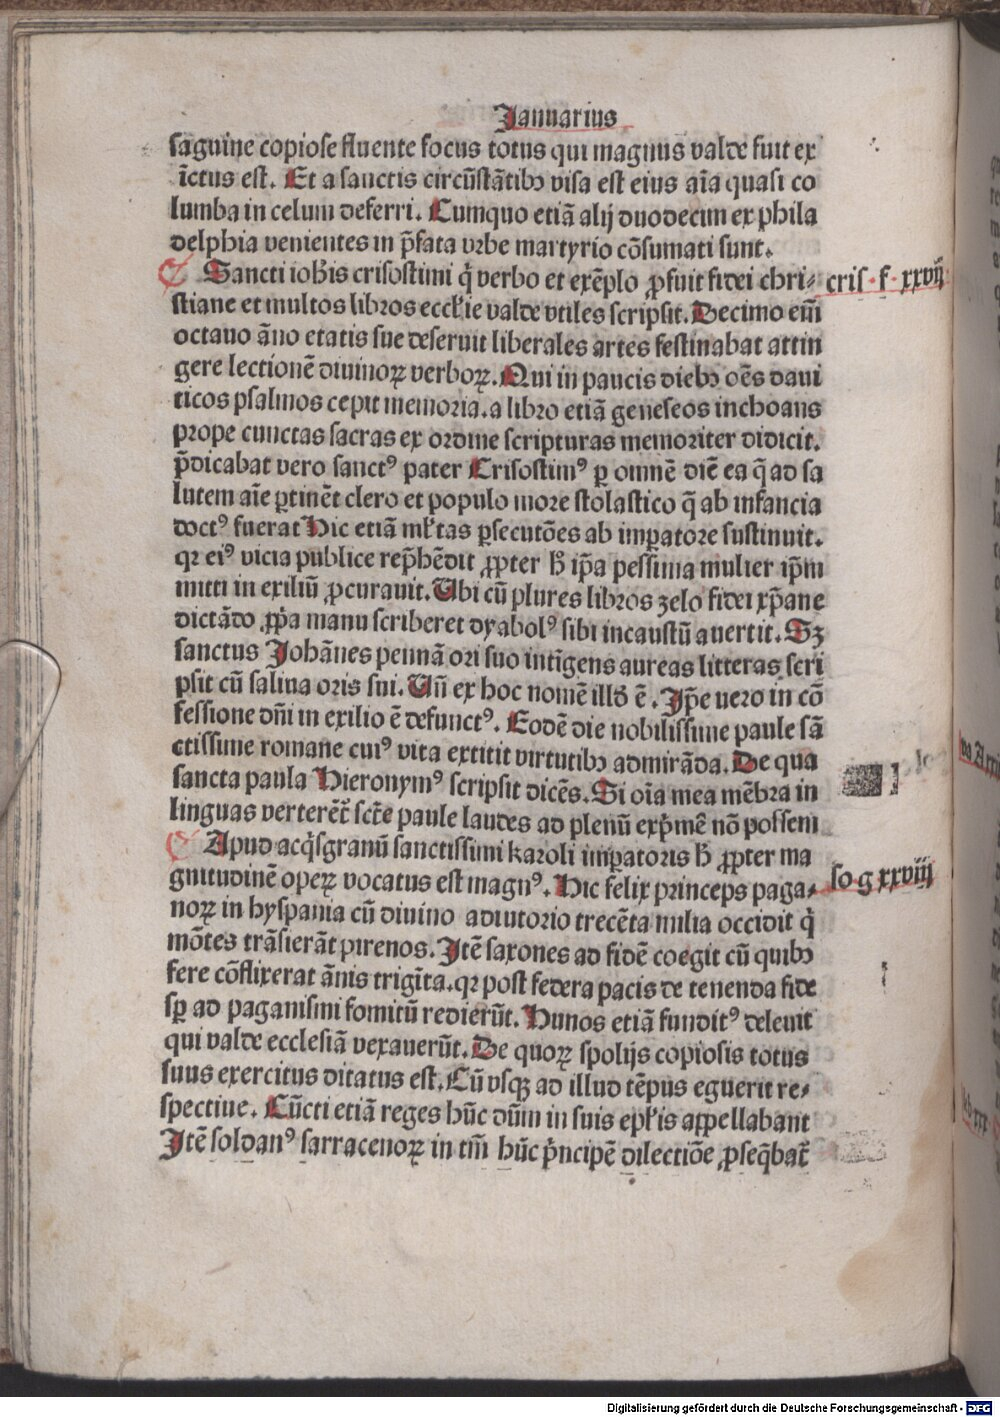 Januarius
sāguine copiose fluente focus totus qui magnus valde fuit ex
īctus est. Et a sanctis circūstātibꝫ visa est eius aīa quasi co
lumba in celum deferri. Cumquo etiā alij duodecim ex phila
delphia venientes in p̄fata vrbe martyrio cōsumati sunt.
Sancti ioh̄is crisostimi q̇ verbo et exēplo ꝓfuit fidei chri⸗
cris · f · xxvij
stiane et multos libros eccłie valde vtiles scripsit. Decimo em̄
octauo āno etatis sue deseruit liberales artes festinabat attin
gere lectionē diuinoꝝ verboꝝ. Qui in paucis diebꝫ oēs daui
ticos psalmos cepit memoria. a libro etiā geneseos inchoans
prope cunctas sacras ex ordine scripturas memoriter didicit.
p̄dicabat vero sanctꝰ pater Crisostimꝰ ꝑ omnē diē ea q̄ ad sa
lutem aīe ꝑtinēt clero et populo more stolastico q̄ ab infancia
doctꝰ fuerat Hic etiā młtas ꝑsecutōes ab imꝑatore sustinuit.
qꝛ eiꝰ vicia publice rep̄hēdit ꝓpter h̄ ip̄a pessima mulier ip̄m
mitti in exiliū ꝓcurauit. Vbi cū plures libros zelo fidei xp̄ane
dictādo ꝓp̄a manu scriberet dyabolꝰ sibi incaustū auertit. Sꝫ
sanctus Johānes pennā ori suo intīgens aureas litteras scri
psit cū saliua oris sui. Vn̄ ex hoc nomē illđ ē. Ip̄e uero in cō
fessione dn̄i in exilio ē defunctꝰ. Eodē die nobilissime paule sā
ctissime romane cuiꝰ vita extitit virtutibꝫ admirāda. De qua
sancta paula Hieronymꝰ scripsit dicēs. Si oīa mea mēbra in
linguas verterēt̄ sct̄e paule laudes ad plenū exp̄mē nō possem
Apud acq̇sgranū sanctissimi karoli imꝑatoris h̄ ꝓpter ma
gnitudinē opeꝝ vocatus est magnꝰ. Hic felix princeps paga⸗
so g xxviij
noꝝ in hyspania cū diuino adiutorio trecēta milia occidit q̇
mōtes trāsierāt pirenos. Itē saxones ad fidē coegit cū quibꝫ
fere cōflixerat ānis trigīta. qꝛ post federa pacis de tenenda fide
sꝑ ad paganismi fomitū redierūt. Hunos etiā funditꝰ deleuit
qui valde ecclesiā vexauerūt. De quoꝝ spolijs copiosis totus
suus exercitus ditatus est. Cū vsqꝫ ad illud tēpus eguerit re⸗
spectiue. Cūcti etiā reges hūc dūm in suis epłis appellabant
Itē soldanꝰ sarracenoꝝ in tm̄ hūc p̄ncipē dilectiōe ꝓseq̄bat̄
Digitalisierung gefördert durch die Deutsche Forschungsgemeinschaft - DFG